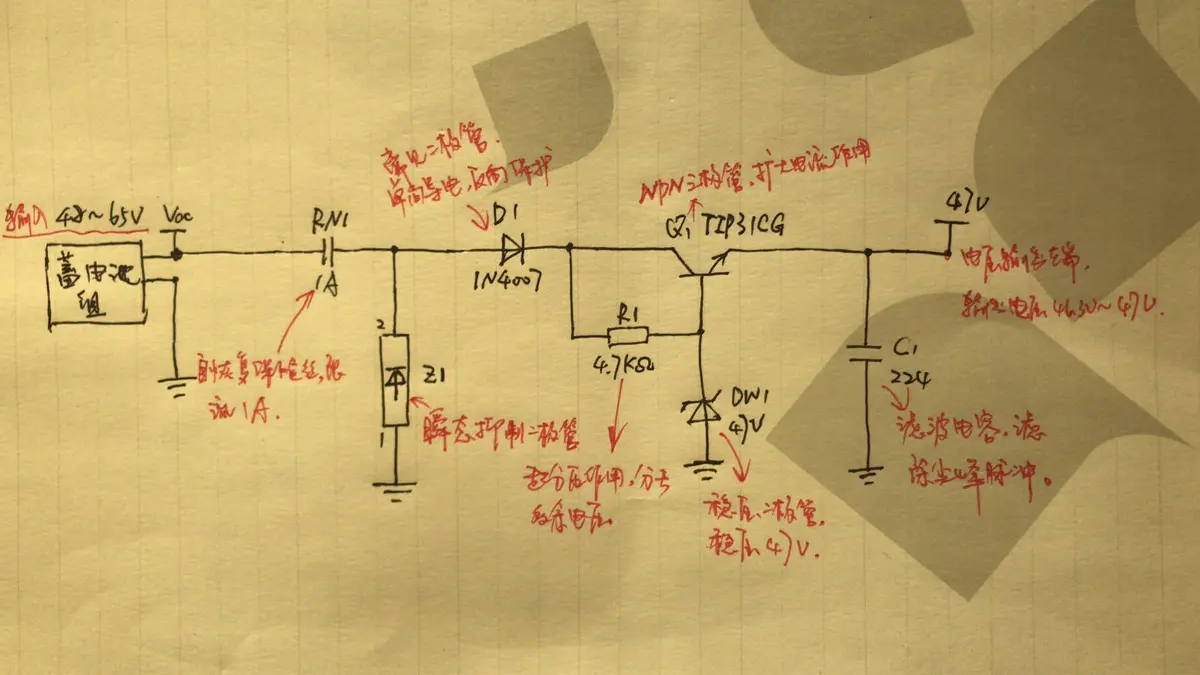 常见二极管.
单向导电,反向保护
NPN三极管,扩大电流作用
输入 48~65V
Voc
RN1
D1
Q1 TIP31CG
47V
蓄电池
组
1A
1N4007
R1
4.7KΩ
电压输出端.
输出电压46.3V~47V.
2
Z1
1
C1
224
DW1
47V
自恢复保险丝,限
流1A.
瞬态抑制二极管
起分压作用,分去
多余电压
稳压二极管,
稳压47V.
滤波电容,滤
除尖峰脉冲。